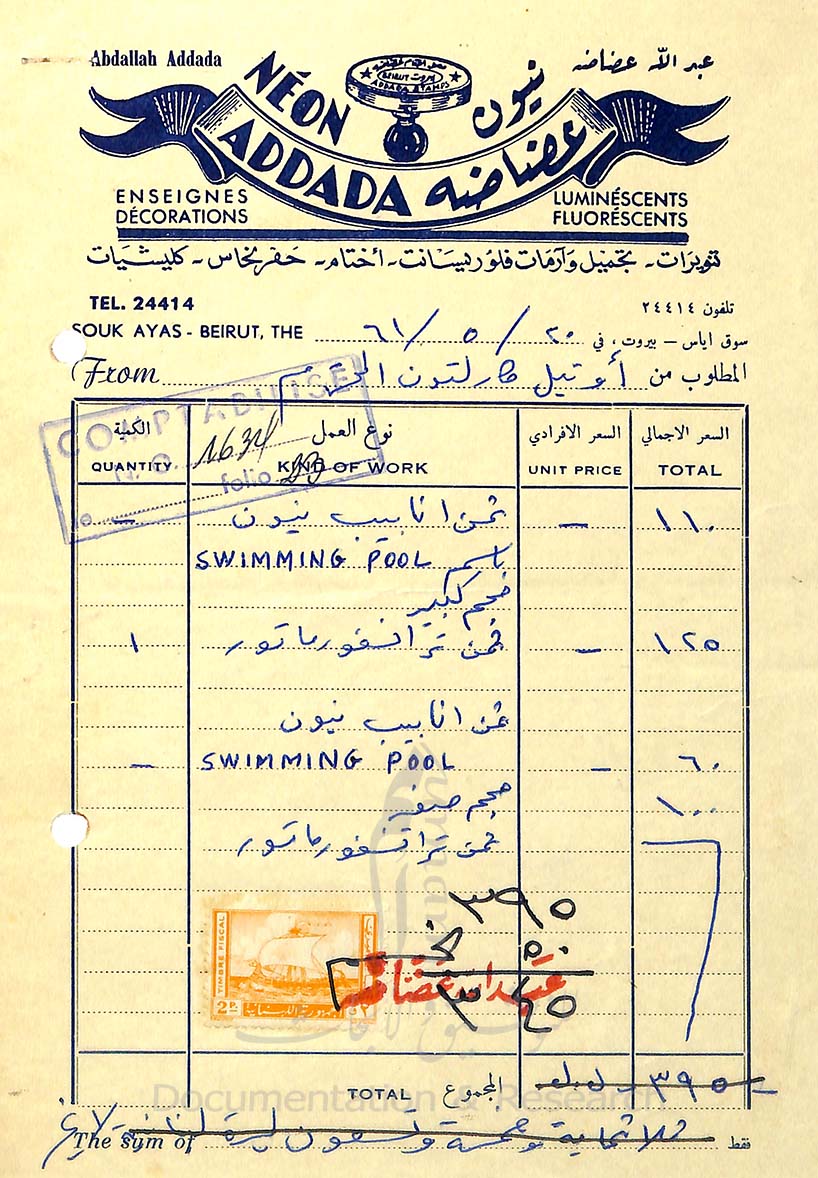 Abdallah Addada
عبد الله عضاضه
NÉON نيون
BEIRUT بيروت
ADDADA STAMPS
ADDADA عضاضه
ENSEIGNES
DÉCORATIONS
LUMINÉSCENTS
FLUORÉSCENTS
تنويرات - تجميل وآرمات فلوريسانت - أختام - حفر نحاس - كليشيات
TEL. 24414
تلفون ٢٤٤١٤
SOUK AYAS - BEIRUT, THE
سوق اياس – بيروت، في ٢٠ / ٥ / ٦١
From المطلوب من أوتيل كارلتون المحترم
COMPTABILISE
N. O. 1634
folio 23
الكمية نوع العمل السعر الافرادي السعر الاجمالي
QUANTITY KIND OF WORK UNIT PRICE TOTAL
— ثمن انابيب نيون — ١١٠
باسم SWIMMING POOL
حجم كبير
١ ثمن ترانسفورماتور — ١٢٥
ثمن انابيب نيون
— SWIMMING POOL — ٦٠
حجم صغير ١٠٠
ثمن ترانسفورماتور
٣٩٥
٥٠
٣٤٥
TIMBRE FISCAL
2 P.
الجمهورية اللبنانية
عبدالله عضاضه
TOTAL المجموع ٣٩٥ ل.ل
The sum of فقط ثلاثماية وخمسة وتسعون ليرة لبنانية لاغير
Documentation & Research